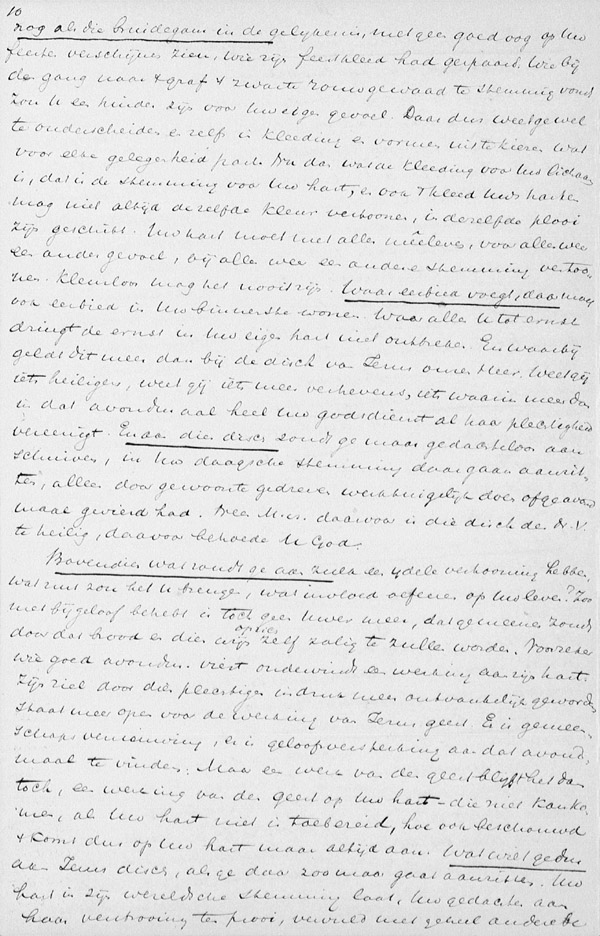 10
nog als die bruidegom in de gelijkenis, met geen goed oog op Uw
feeste verschijnen zien, wie zijn feestkleed had gespaard. Wie bij
de gang naar 't graf 't zwarte rouwgewaad te stemming vond
zou U een hinder zijn voor Uw eigen gevoel. Daar dus weet ge wel
te onderscheiden en zelfs in kleeding en vormen uit te kiezen wat
voor elke gelegenheid past. Nu dan wat de kleeding voor Uw lichaam
is, dat is de stemming voor Uw hart, en ook 't kleed Uws harten
mag niet altijd dezelfde kleur vertoonen, in dezelfde plooi
zijn geschikt. Uw hart moet met alles meeleven, voor alles weer
een ander gevoel, bij alles weer een andere stemming vertoo-
nen. Kleurloos mag het nooit zijn. Waar eerbied voegt, daar moet
ook eerbied in Uw binnenste wonen. Waar alles U tot ernst
dringt de ernst in Uw eigen hart niet ontbreken. En waarbij
geldt dit meer dan bij de disch van Jezus onzen Heer. Weet gij
iets heiligers, weet gij iets meer verhevens, iets waarin meer dan
in dat avondmaal heel Uw godsdienst al haar plechtigheid
vereenigt. En aan dien disch zoudt ge maar gedachteloos aan
schuiven, in Uw daagsche stemming daar gaan aanzit-
ten, alleen door gewoonte gedreven werktuigelijk doen of ge avond
maal gevierd had. Nee M. daarvoor is die disch de
te heilig, daarvoor behoede U God.
Bovendien wat zoudt ge aan zulk een ydele vertooning hebben
wat nut zou het U brengen, wat invloed oefenen op Uw leven? Zoo
met bijgeloof behebt is toch geen Uwer meer, dat ge meenen zoudt
door dat brood en dien wijn op zich zelf zalig te zullen worden. Voorzeker
wie goed avondm. viert ondervindt een werking aan zijn hart.
Zijn ziel door dien plechtigen indruk meer ontvankelijk geworden
staat meer open voor de werking van Jezus geest. Er is gemeen-
schapsvernieuwing, er is geloofsversterking aan dat avond-
maal te vinden. Maar een werk van de geest blyft het dan
toch, een werking van de geest op Uw hart – die niet kan ko-
men, als Uw hart niet is toebereid, hoe ook beschouwd
't komt dus op Uw hart maar altijd aan. Wat wilt ge dus
aan Jezus disch, als ge daar zoo maar gaat aanzitten. Uw
hart in zijn wereldsche stemming laat, Uw gedachten aan
haar verstrooiing ten prooi, vervuld met geheel andere be